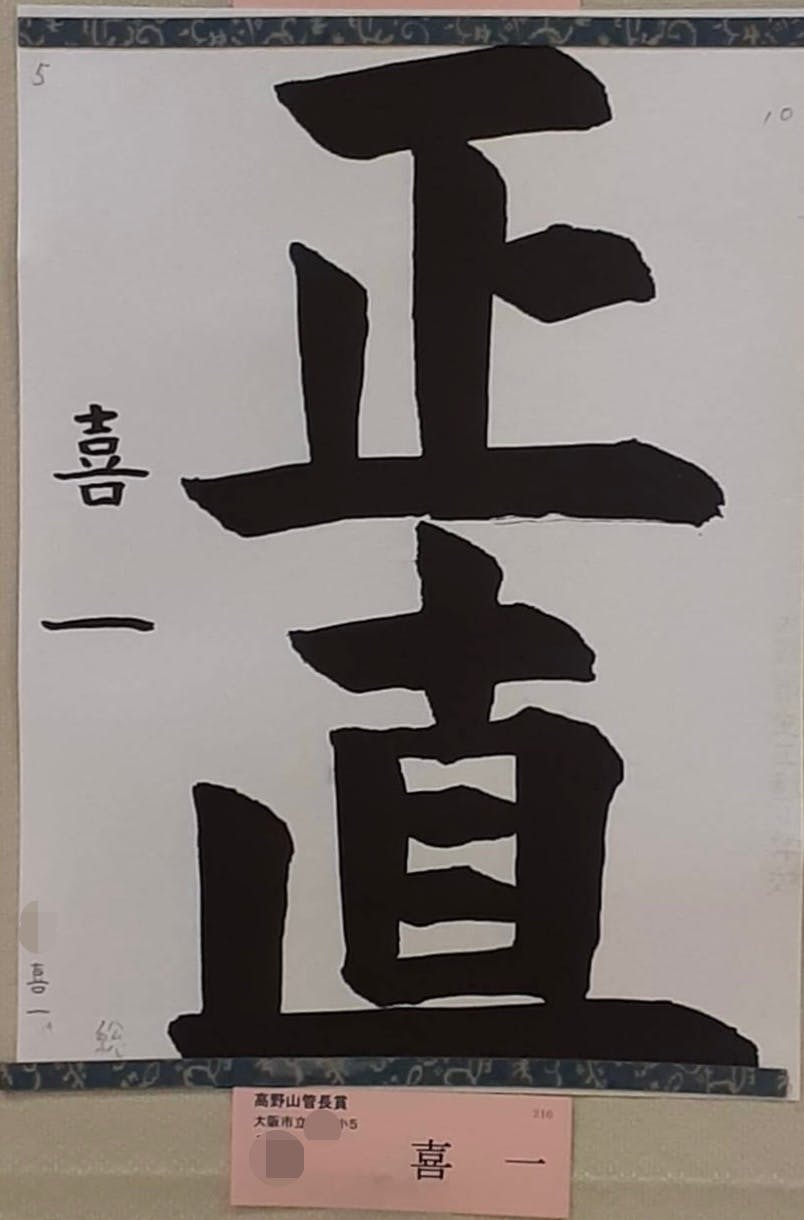 正直
喜一
5
10
喜一
高野山管長賞
216
大阪市立 小5
喜一